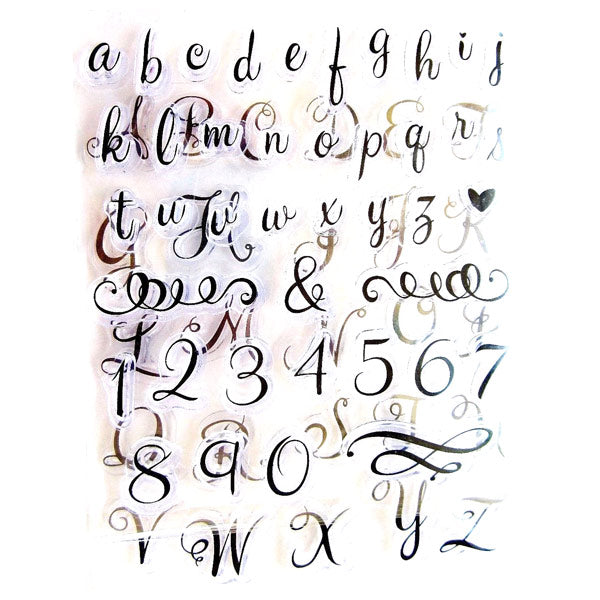 a b c d e f g h i j
k l m n o p q r s
t u v w x y z
&
1 2 3 4 5 6 7
8 9 0
V W X Y Z